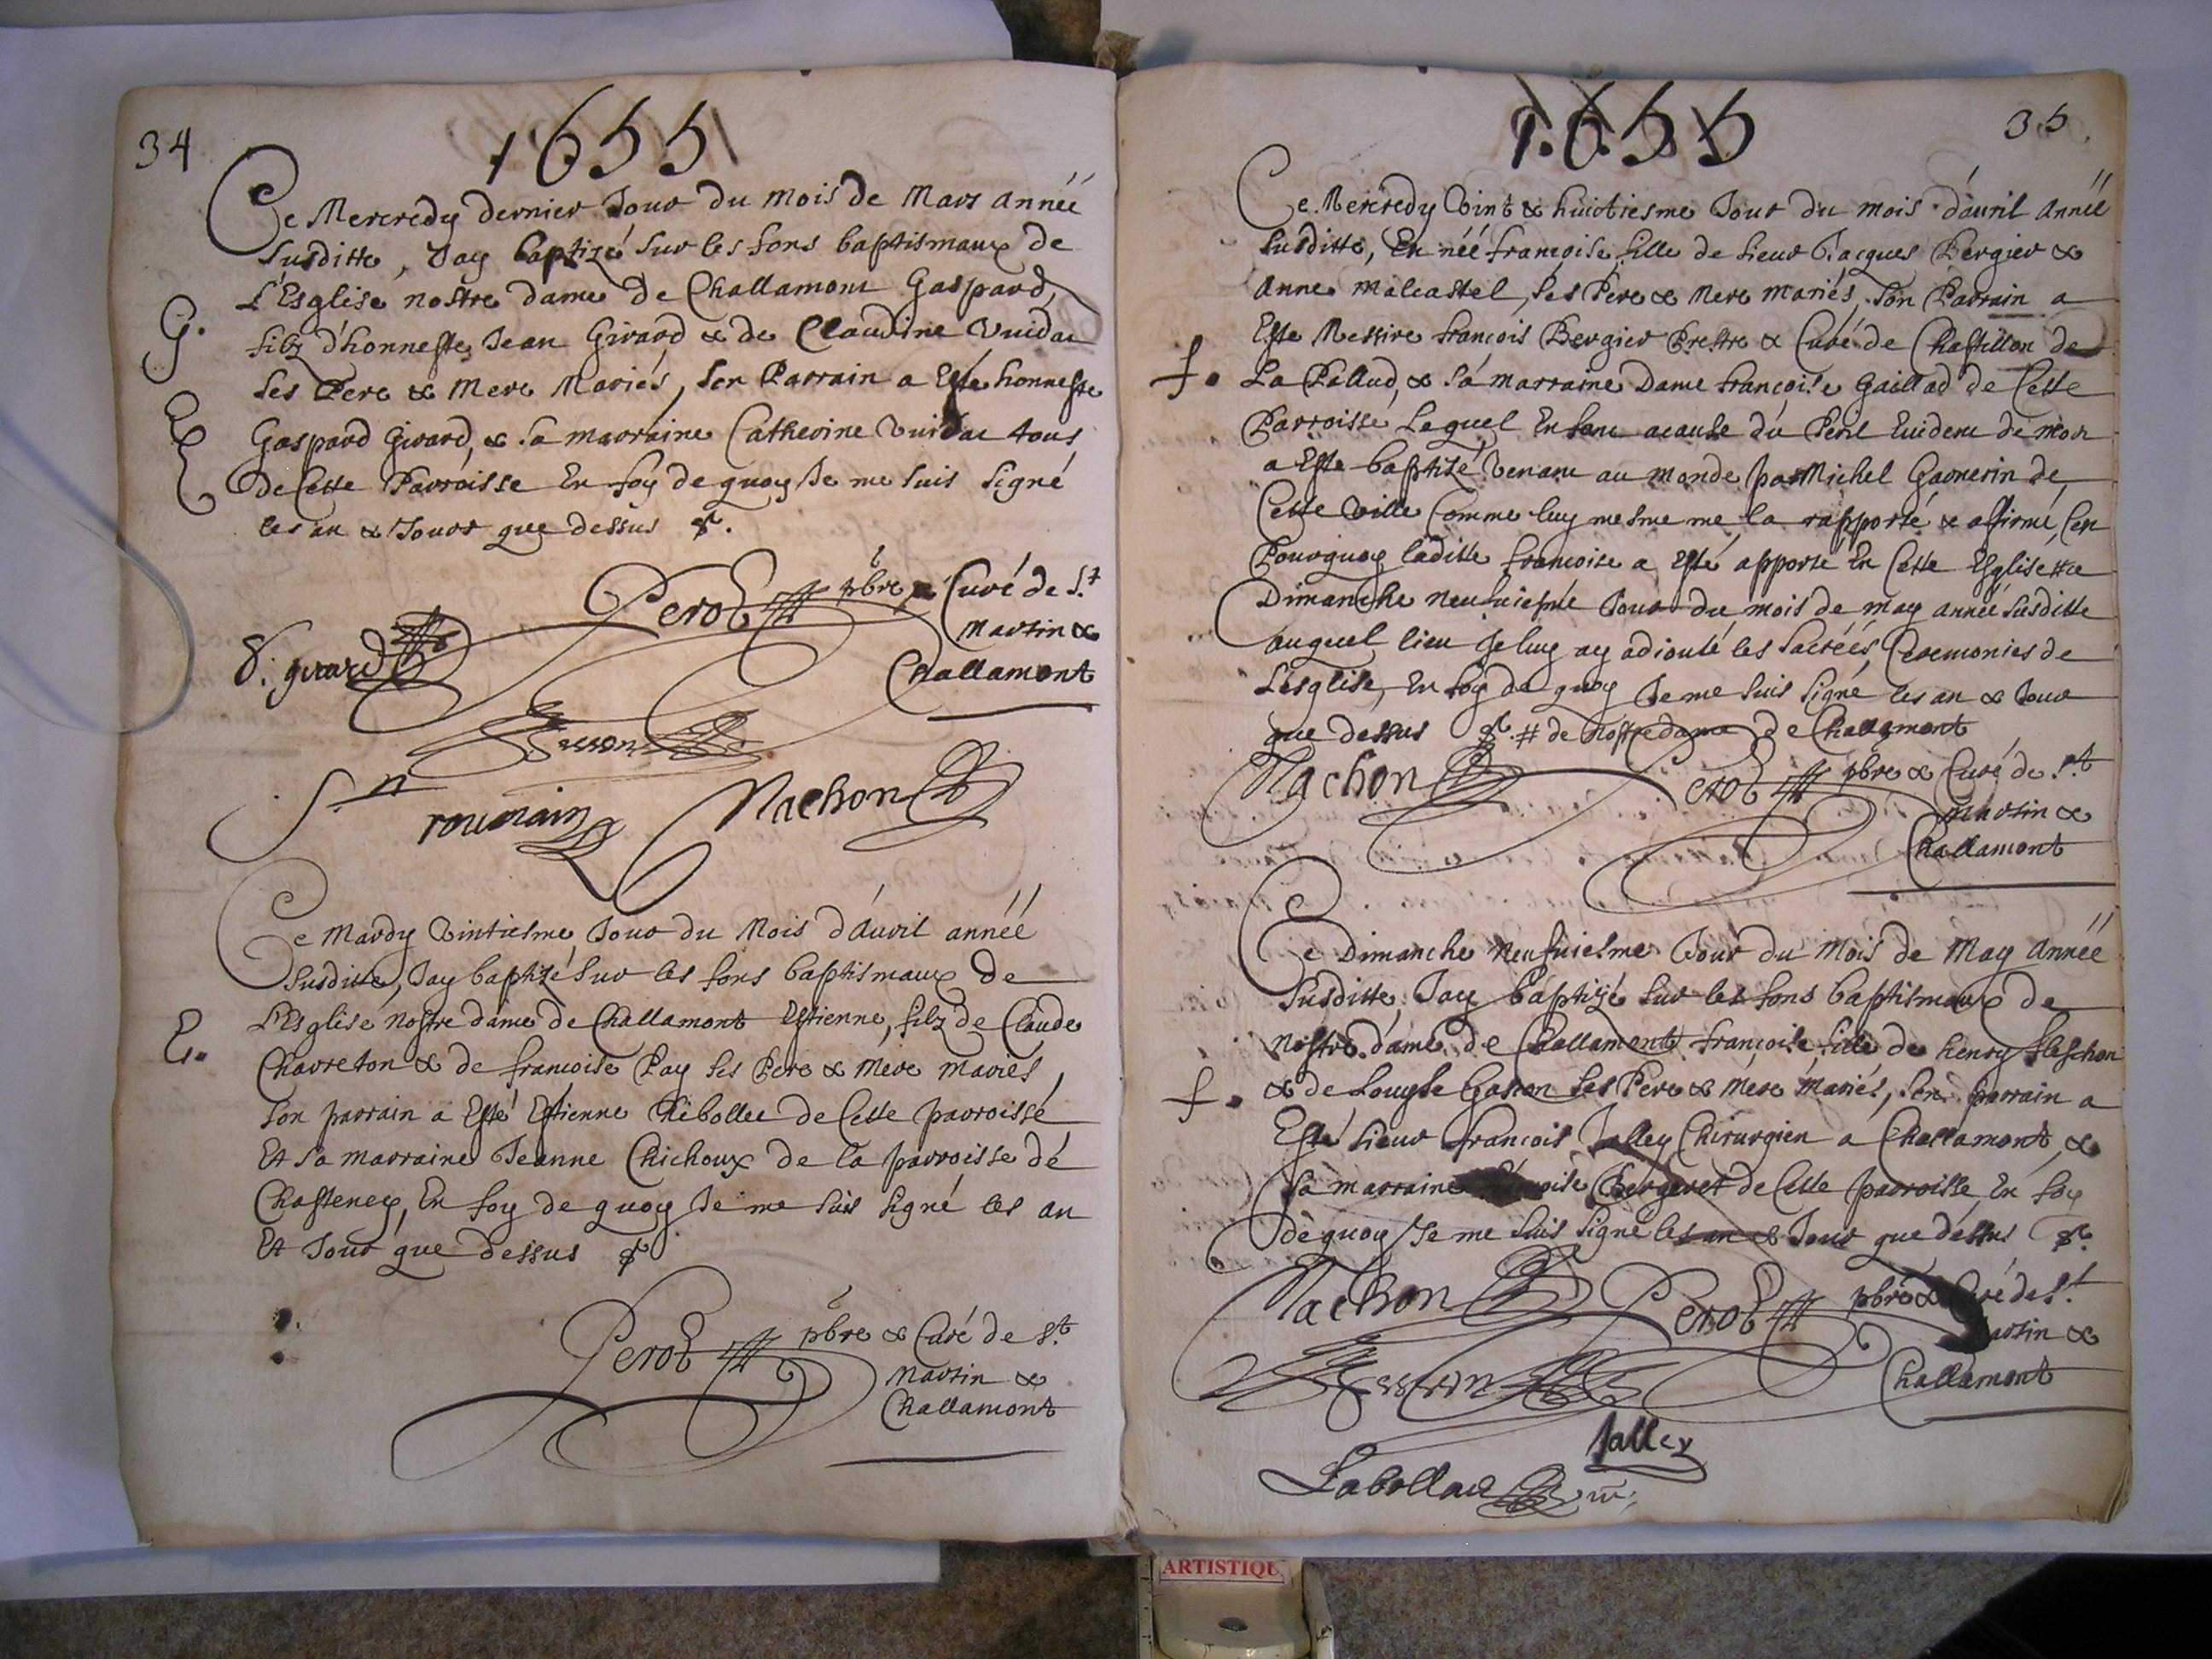 34
1655
Ce Mercredy dernier Jour du mois de Mars année
susditte, Jay baptizé sur les fons baptismaux de
L'Esglise nostre dame de Challamont Gaspard,
G.
filz d'honneste Jean Girard & de Claudine Vuidat
ses Pere & Mere Mariés, son Parrain a Esté honneste
Gaspard Girard, & sa marraine Catherine Vuidat tous
de Cette Parroisse En foy de quoy Je me suis signé
les an & Jour que dessus &.
Perot pbre & Curé de St
Martin &
Challamont
girard
roumain
Nachon
Ce Mardy Vintiesme Jour du Mois d'Auril année
susditte, Jay baptizé sur les fons baptismaux de
L'Esglise nostre dame de Challamont Estienne, filz de Claude
E.
Charreton & de francoise Pay ses Pere & Mere mariés,
son parrain a Esté Estienne Ribollet de Cette parroisse
Et sa marraine Jeanne Chichoux de la parroisse de
Chasteney, En foy de quoy Je me suis signé les an
Et Jour que dessus &
Perot pbre & Curé de St
Martin &
Challamont
1.6.5.5
35
Ce Mercredy Vint & huictiesme Jour du mois d'auril année
susditte, Est née françoise fille de sieur Jacques Bergier &
Anne malcastel, ses Pere & Mere mariés, son Parrain a
Esté Messire françois Bergier Prestre & Curé de Chastillon de
f.
La Pallud, & sa marraine Dame françoise Gaillad de Cette
Parroisse Lequel Enfant acause du Peril Euident de mort
a Esté baptizé Venant au monde par Michel Garnerin de
Cette Ville Comme luy mesme me la rapporté & affirmé, Cest
Pourquoy laditte francoise a Esté apporté En Cette Esglise # ce
Dimanche neufuiesme Jour du mois de may année susditte
auquel lieu Je luy ay adiouté les sacréés Ceremonies de
L'esglise, En foy de quoy Je me suis signé les an & Jour
que dessus &. # de nostre dame de Challamont
Nachon Perot pbre & Curé de St
Martin &
Challamont
Ce Dimanche neufuiesme Jour du Mois de May Année
susditte, Jay baptizé sur les fons baptismaux de
Nostre dame de Challamont françoise fille de henry fleschon
f.
& de Louyse Gascon ses Pere & Mere mariés, son parrain a
Esté sieur francois Jalley Chirurgien a Challamont &
sa marraine Bergeret de Cette parroisse En foy
de quoy Je me suis signé les an & Jour que dessus &.
Nachon Perot pbre & Curé de St
Martin &
Challamont
Jalley
ARTISTIQU